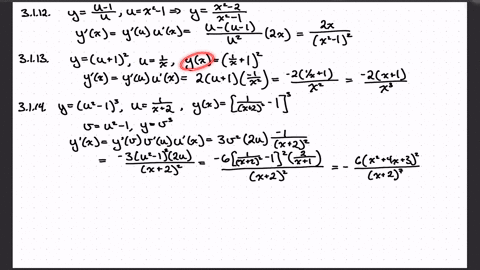 3.1.12. y = (u-1)/u, u = x²-1 ⇒ y = (x²-2)/(x²-1)
y'(x) = y'(u) u'(x) = (u-(u-1))/u² (2x) = 2x/(x²-1)²
3.1.13. y = (u+1)², u = 1/x, y(x) = (1/x+1)²
y'(x) = y'(u) u'(x) = 2(u+1)(-1/x²) = -2(1/x+1)/x² = -2(x+1)/x³
3.1.14. y = (u²-1)³, u = 1/(x+2), y(x) = [1/(x+2)² -1]³
v = u²-1, y = v³
y'(x) = y'(v) v'(u) u'(x) = 3v² (2u) -1/(x+2)²
= -3(u²-1)²(2u)/(x+2)² = -6[1/(x+2)² -1]²(2/(x+1))/(x+2)² = - 6(x²+4x+3)²/(x+2)⁷